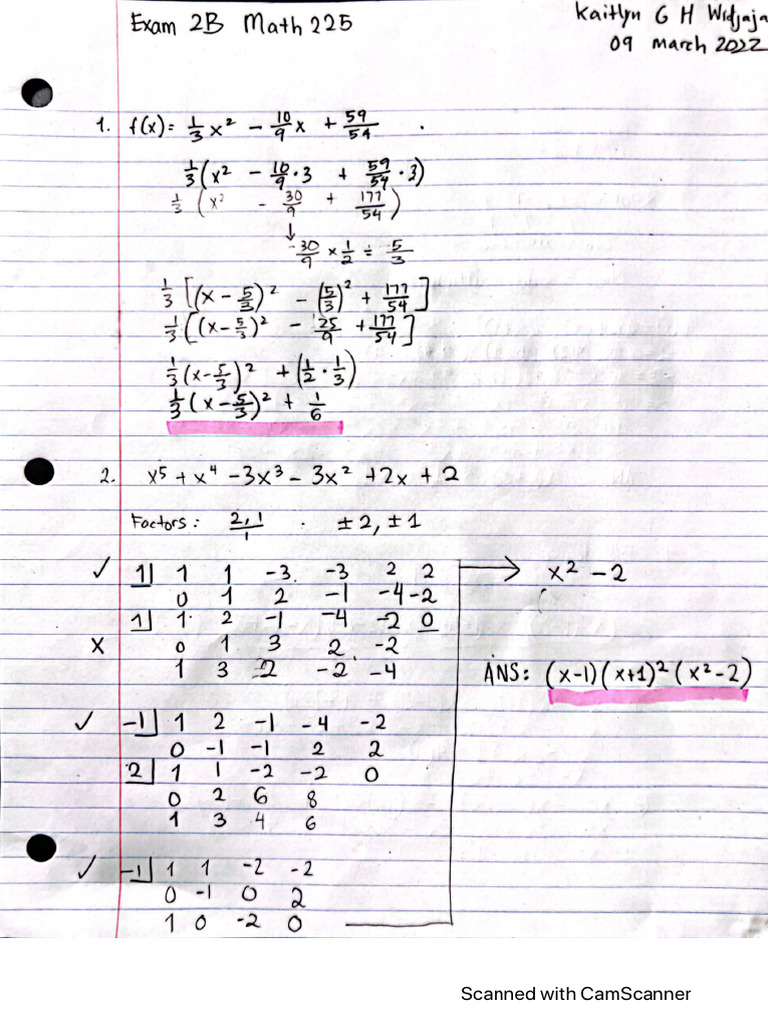 Exam 2B Math 225
Kaitlyn G H Widjaja
09 march 2022
1. f(x) = 1/3 x² - 10/9 x + 59/54 .
1/3 (x² - 10/9 · 3 + 59/54 · 3)
1/3 (x² - 30/9 + 177/54)
↓
-30/9 × 1/2 = -5/3
1/3 [(x - 5/3)² - (5/3)² + 177/54]
1/3 [(x - 5/3)² - 25/9 + 177/54]
1/3 (x - 5/3)² + (1/2 · 1/3)
1/3 (x - 5/3)² + 1/6
2. x⁵ + x⁴ - 3x³ - 3x² + 2x + 2
Factors: 2,1/1 . ±2, ±1
✓ 1| 1 1 -3 -3 2 2 → x² - 2
0 1 2 -1 -4 -2
1| 1 2 -1 -4 -2 0
x 0 1 3 2 -2
1 3 2 -2 -4
ANS: (x-1)(x+1)²(x²-2)
✓ -1| 1 2 -1 -4 -2
0 -1 -1 2 2
2| 1 1 -2 -2 0
0 2 6 8
1 3 4 6
✓ -1| 1 1 -2 -2
0 -1 0 2
1 0 -2 0
Scanned with CamScanner